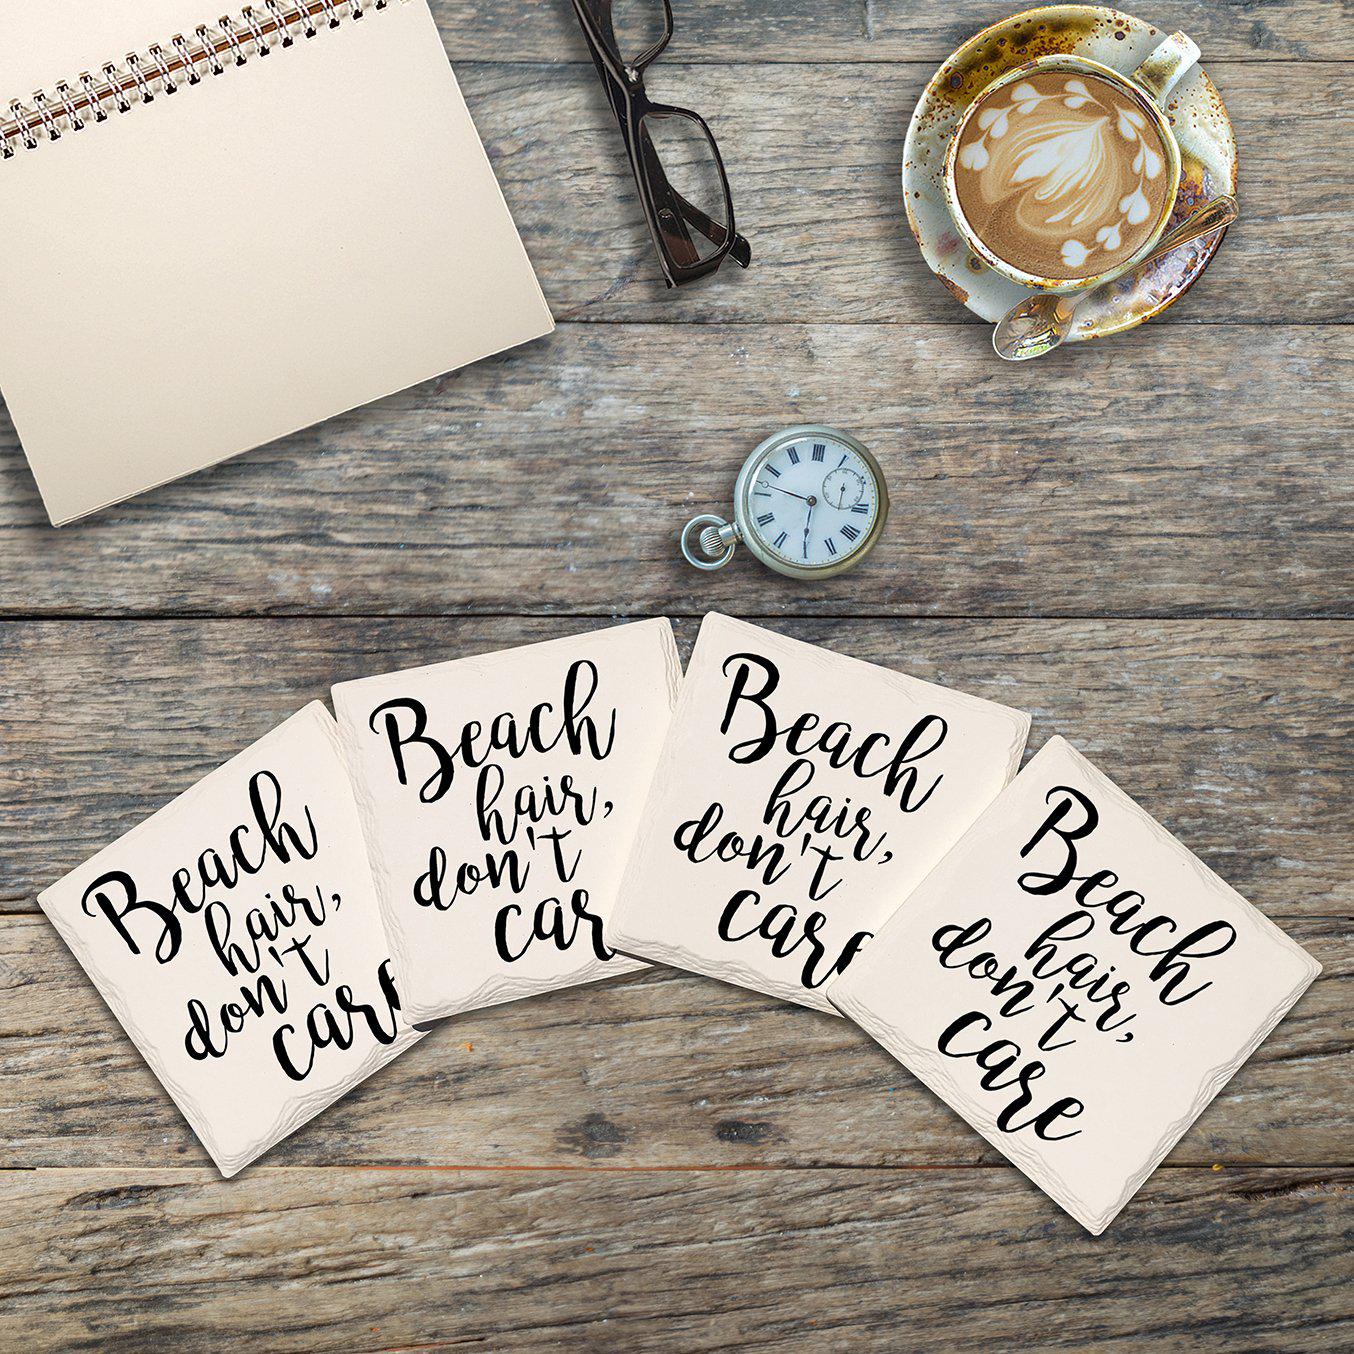 Beach
hair,
don't
car
Beach
hair,
don't
car
Beach
hair,
don't
car
Beach
hair,
don't
care